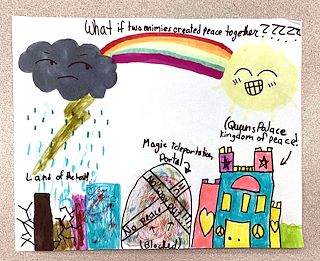 What if two enimies created peace together????
(Queens Palace
kingdom of peace!
Magic Teleportation
Portal
Land of the
No Peace
(Blocked)